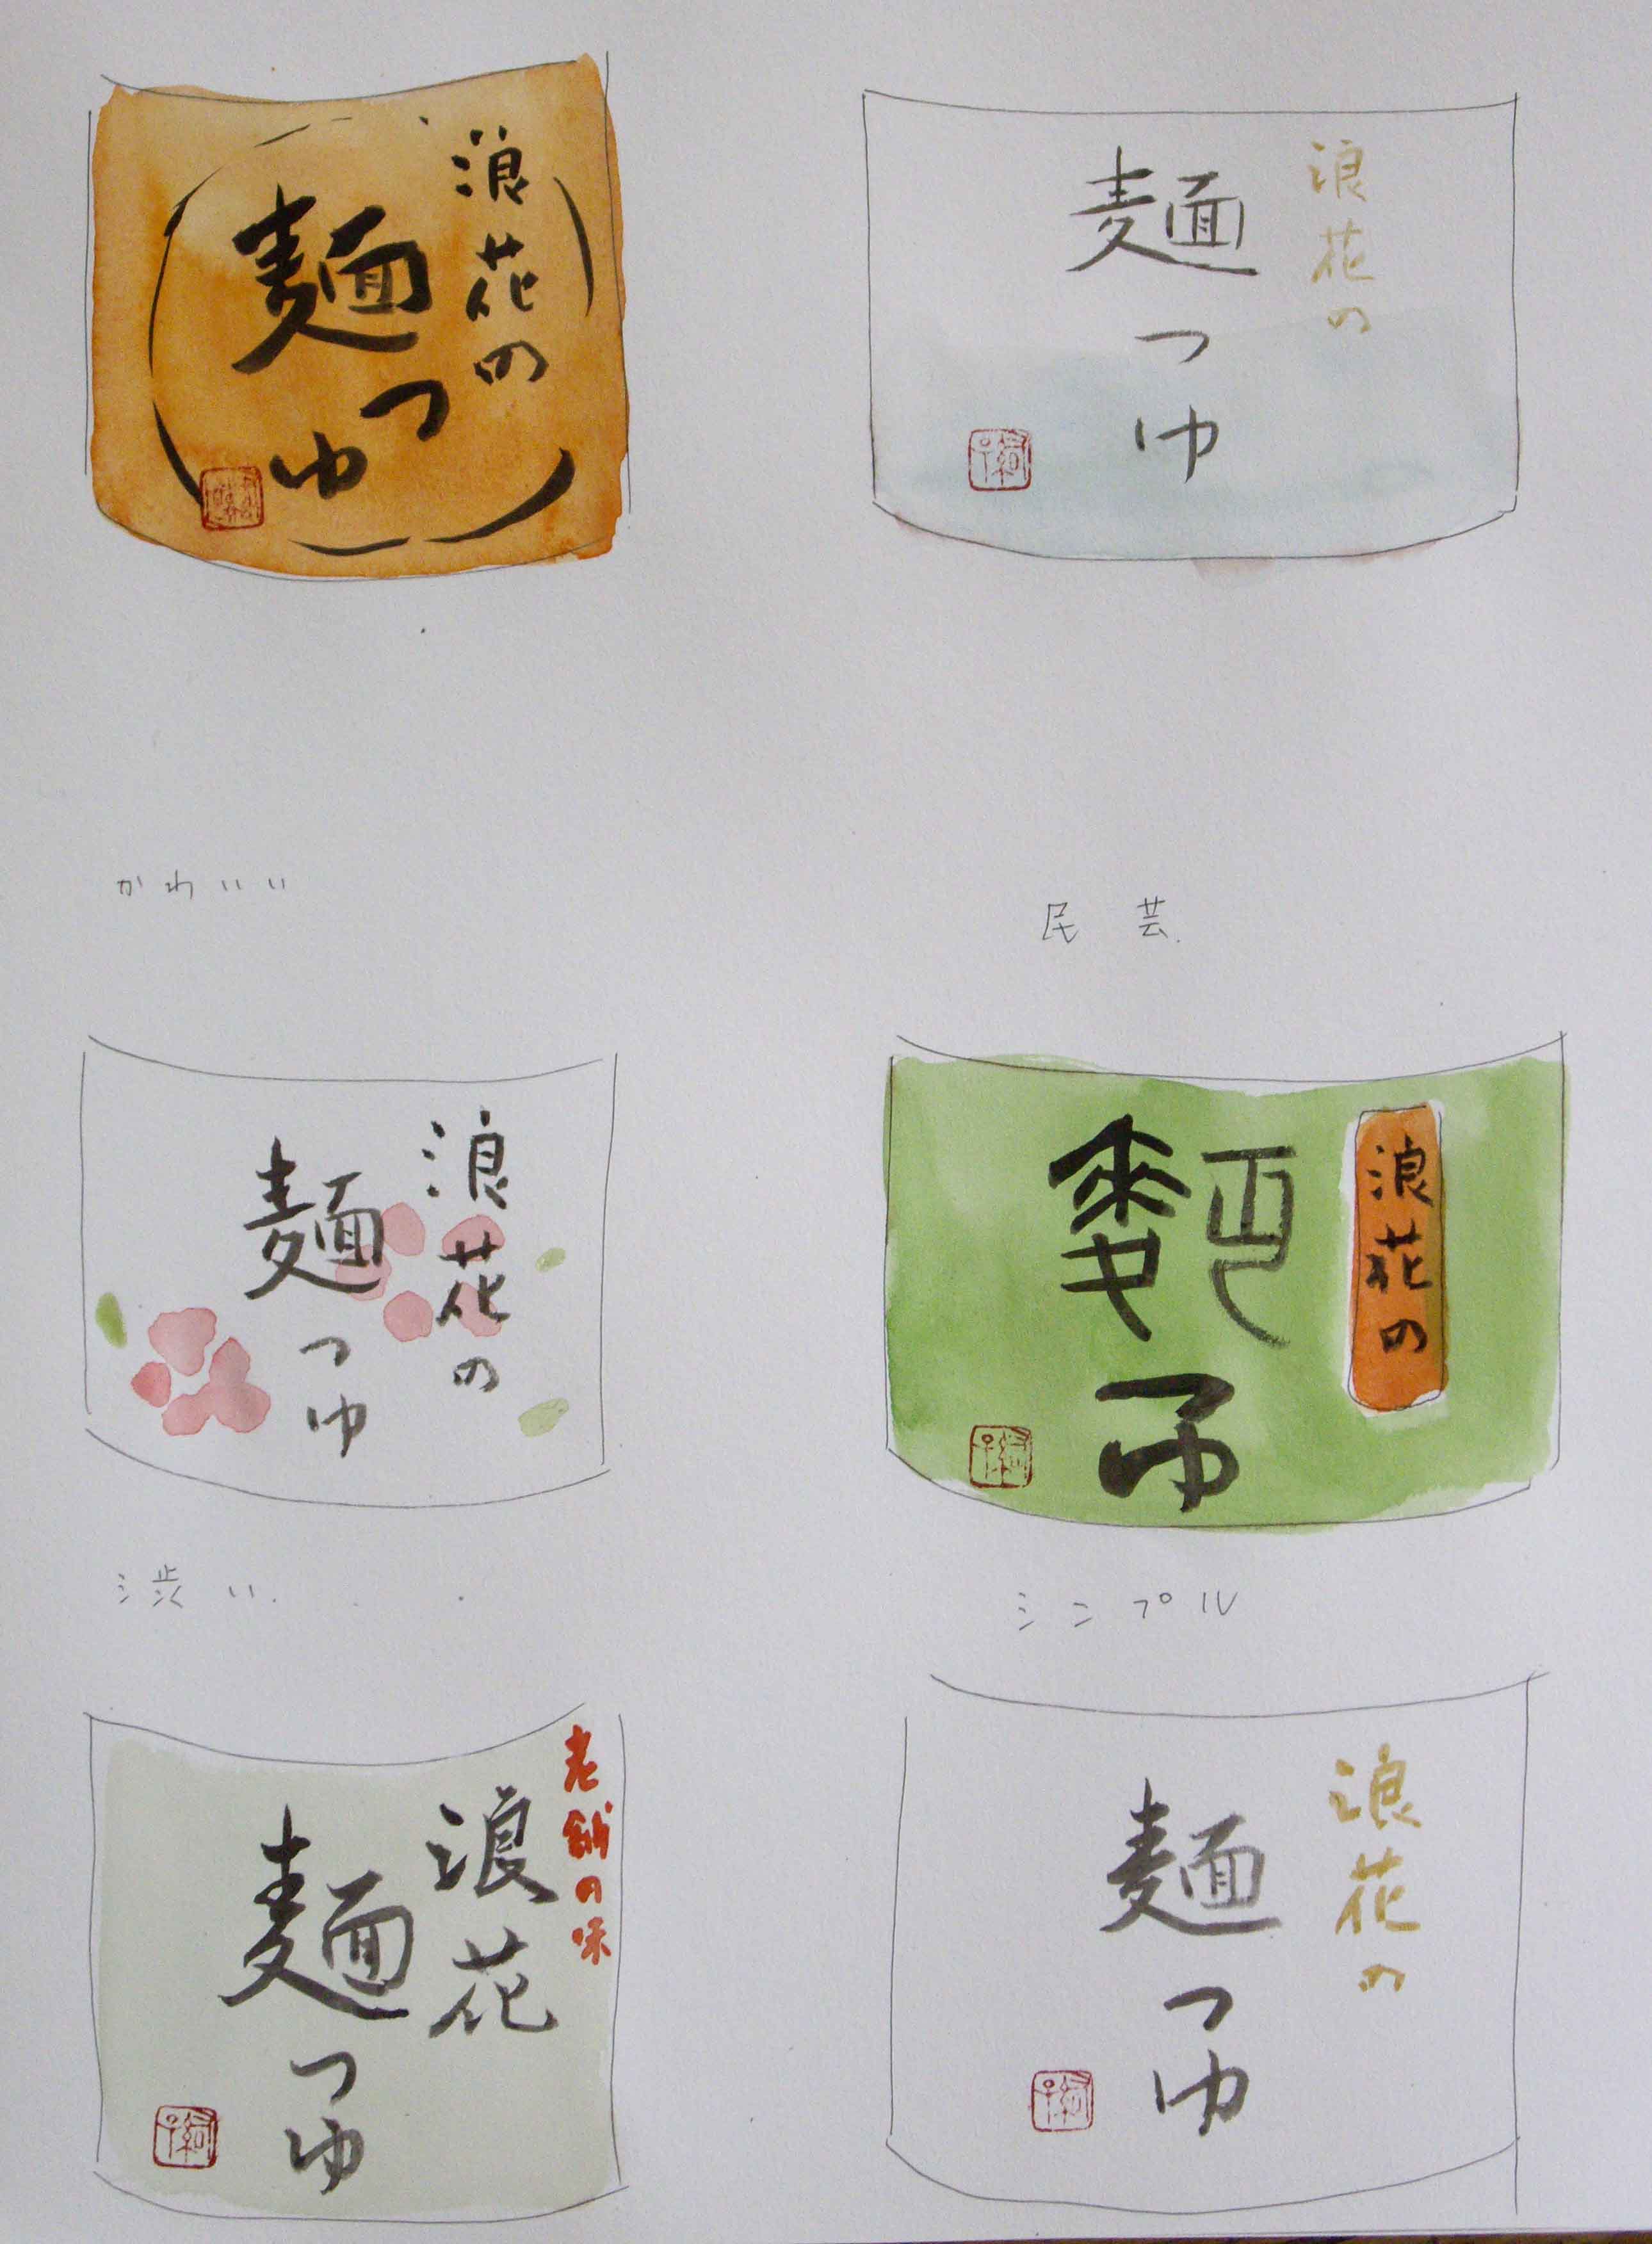 浪花の
麺つゆ
浪花の
麺つゆ
かわいい
民芸
浪花の
麺つゆ
浪花の
麺つゆ
渋い
シンプル
老舗の味
浪花
麺つゆ
浪花の
麺つゆ